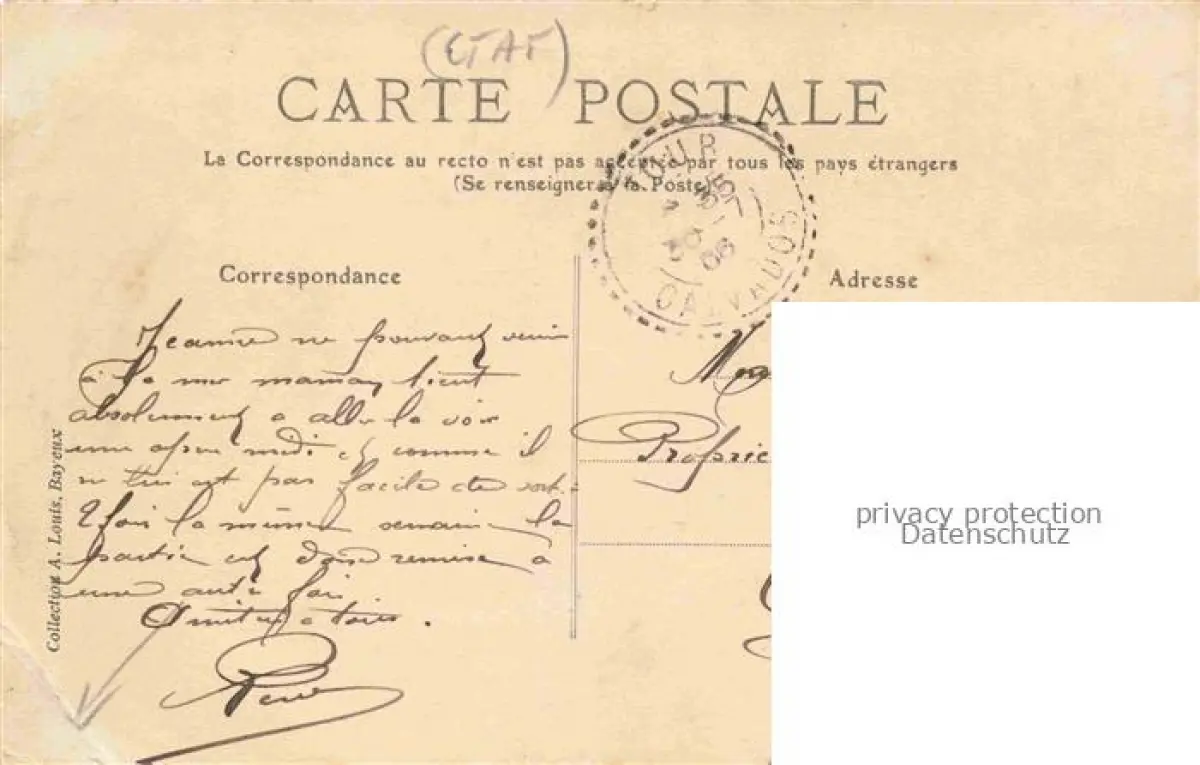 (ETAT)
CARTE POSTALE
La Correspondance au recto n'est pas acceptée par tous les pays étrangers
(Se renseigner à la Poste)
TOUR
06
CALVADOS
Correspondance
Adresse
Jeanne ne pouvant venir
à la mer maman tient
absolument a aller la voir
une apres midi et comme il
ne lui est pas facile de sort.
2 fois la même semaine la
partie est donc remise à
une autre fois
Amitiés a tous.
Proprié
Collection A. Louis, Bayeux
privacy protection
Datenschutz